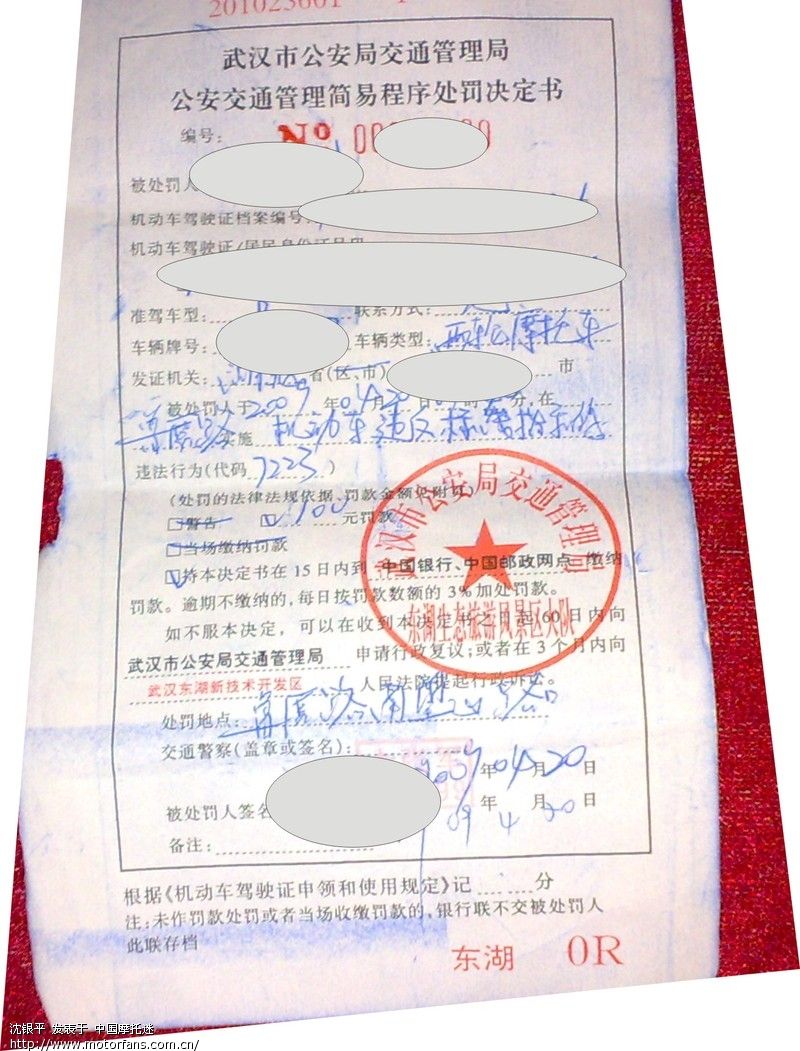 201023601
武汉市公安局交通管理局
公安交通管理简易程序处罚决定书
编号: No 00
被处罚人
机动车驾驶证档案编号:
机动车驾驶证/居民身份证号码
准驾车型: 联系方式:
车辆牌号: 车辆类型: 两轮摩托车
发证机关: 湖北 省(区、市) 市
被处罚人于 2009 年 04 月 20 日 时 分,在
实施 机动车违反标志指示的
违法行为(代码 7223 )
(处罚的法律法规依据、罚款金额见附页)
□警告 ☑ 100 元罚款
□当场缴纳罚款
☑持本决定书在 15 日内到 中国银行、中国邮政网点 缴纳
罚款。逾期不缴纳的,每日按罚款数额的 3% 加处罚款。
如不服本决定,可以在收到本决定书之日起60日内向
武汉市公安局交通管理局 申请行政复议;或者在 3 个月内向
武汉东湖新技术开发区 人民法院提起行政诉讼。
武汉市公安局交通管理局
东湖生态旅游风景区大队
处罚地点:
交通警察(盖章或签名):
2009 年 04 月 20 日
被处罚人签名
09 年 4 月 20 日
备注:
根据《机动车驾驶证申领和使用规定》记 分
注:未作罚款处罚或者当场收缴罚款的,银行联不交被处罚人
此联存档
东湖 0R
沈银平 发表于 中国摩托迷
http://www.motorfans.com.cn/